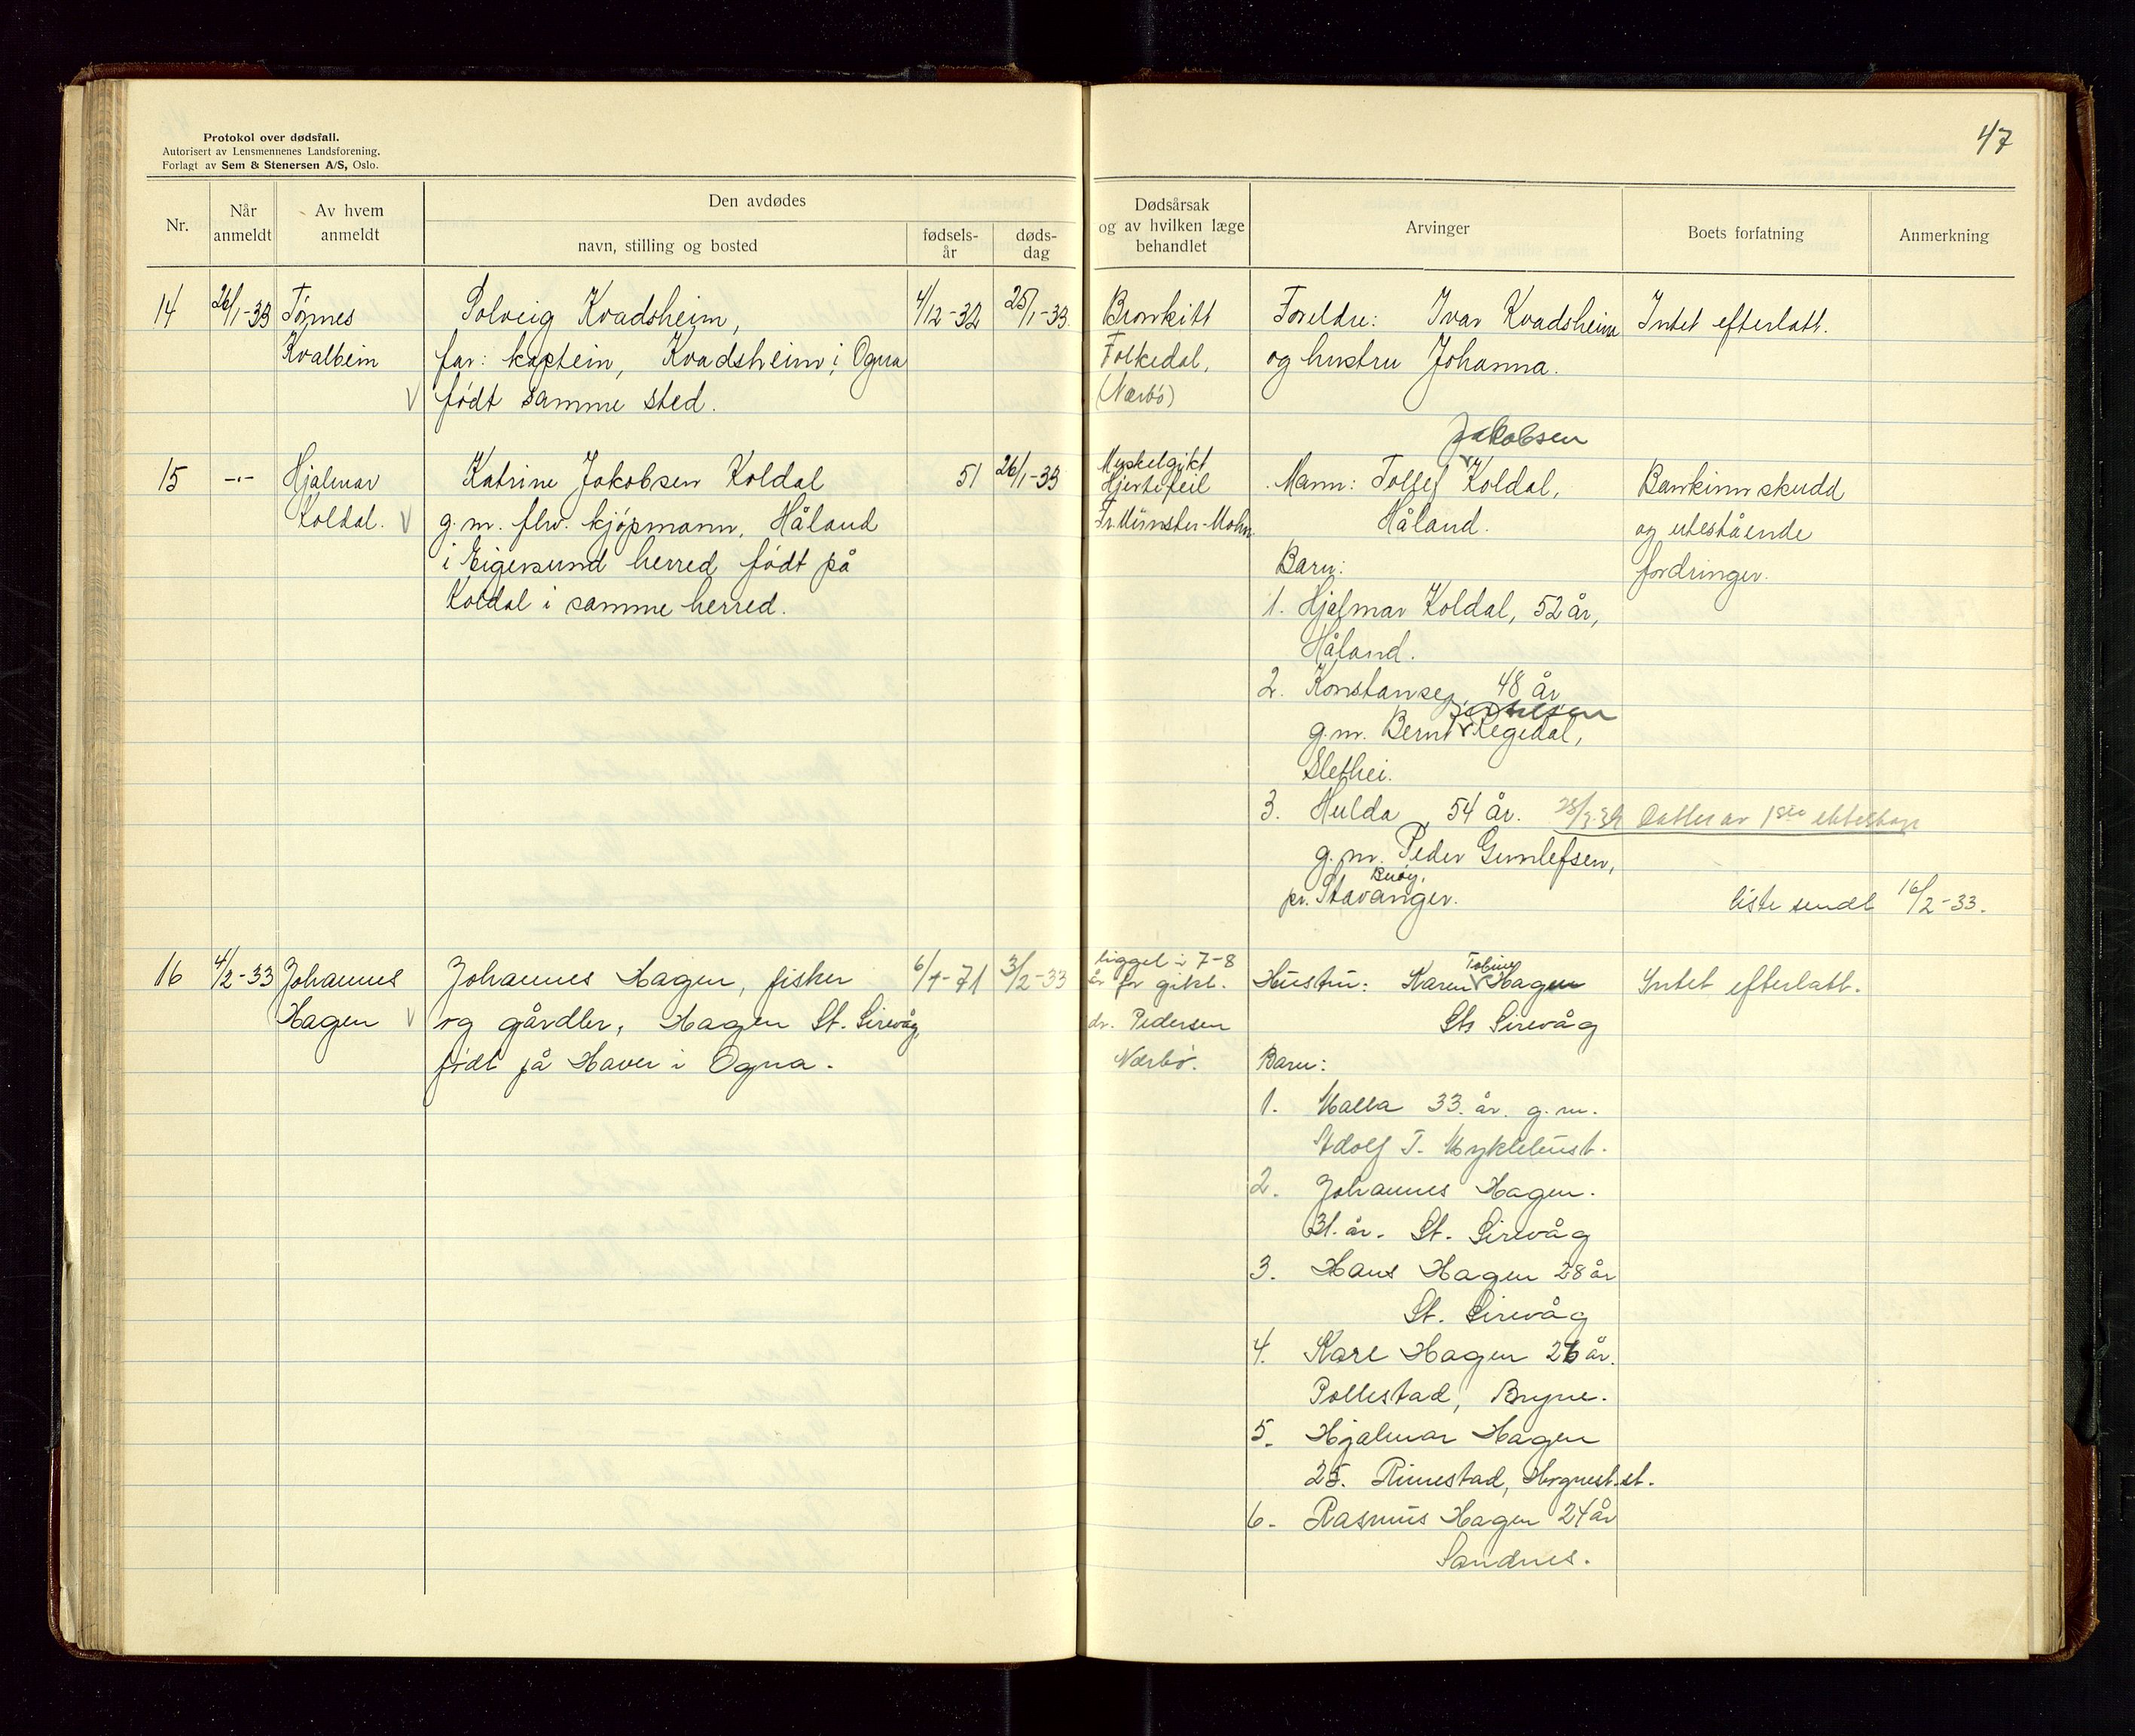 47
Protokol over dødsfall.
Autorisert av Lensmennenes Landsforening.
Forlagt av Sem & Stenersen A/S, Oslo.
Nr.
Når anmeldt
Av hvem anmeldt
Den avdødes
navn, stilling og bosted
fødsels-år
døds-dag
Dødsårsak og av hvilken læge behandlet
Arvinger
Boets forfatning
Anmerkning
14
26/1-33
Tønnes
Kvalbein
Solveig Kvadsheim,
far: kaptein, Kvadsheim i Ogna
født samme sted.
4/12-32
25/1-33.
Bronkitt
Folkedal,
(Nærbø)
Foreldre: Ivar Kvadsheim
og hustru Johanna.
Intet efterlatt.
15
-"-
Hjalmar
Koldal.
Katrine Jakobsen Koldal
g.m. fhv. kjøpmann, Håland
i Eigersund herred, født på
Koldal i samme herred.
51
26/1-33
Muskelgikt
Hjertefeil
Fr. Münster-Mohn
Jakobsen
Mann: Tollef Koldal,
Håland.
Barn:
1. Hjalmar Koldal, 52 år,
Håland.
2. Konstanse, 48 år
Bertelsen
g.m. Bernt Regedal,
Slethei.
3. Hulda, 54 år.
g.m. Peder Gunlefsen,
Buøy,
pr. Stavanger.
Bankinnskudd
og utestående
fordringer.
Datter av 1ste ekteskap
liste sendt 16/2-33.
16
4/2-33
Johannes
Hagen
Johannes Hagen, fisker
og gårdbr., Hagen St. Sirevåg,
født på Haver i Ogna.
6/1-71
3/2-33
ligget i 7-8
år for gikt.
dr. Pedersen
Nærbø.
Tobine
Hustru: Karen Hagen
St. Sirevåg
Barn:
1. Malla 33 år. g.m.
Adolf T. Myklebust.
2. Johannes Hagen.
31. år. St. Sirevåg
3. Hans Hagen 28 år
St. Sirevåg
4. Kare Hagen 26 år.
Pollestad, Bryne.
5. Hjalmar Hagen
25. Rimestad, Hognest. st.
6. Rasmus Hagen 24 år
Sandnes.
Intet efterlatt.